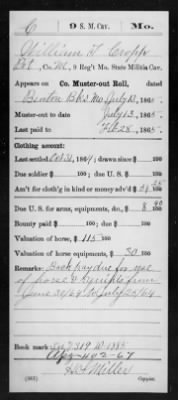 C 9 S. M. Cav. Mo.
William H Cropp
Pvt, Co. M, 9 Reg't Mo. State Militia Cav.
Appears on Co. Muster-out Roll, dated
Benton Bks Mo July 13, 1865.
Muster-out to date July 13, 1865
Last paid to Feb 28, 1865.
Clothing account:
Last settled Oct 31, 1864; drawn since $ 100
Due soldier $ 100; due U. S. $ 100
Am't for cloth'g in kind or money adv'd $ 35 100
Due U. S. for arms, equipments, &c., $ 8 40 100
Bounty paid $ 100; due $ 100
Valuation of horse, $ 115 100
Valuation of horse equipments, $ 30 100
Remarks: Back pay due for use
of horse & equipts from
June 30/64 to July 20/64
Book mark:
H S Miller
(361) Copyist.